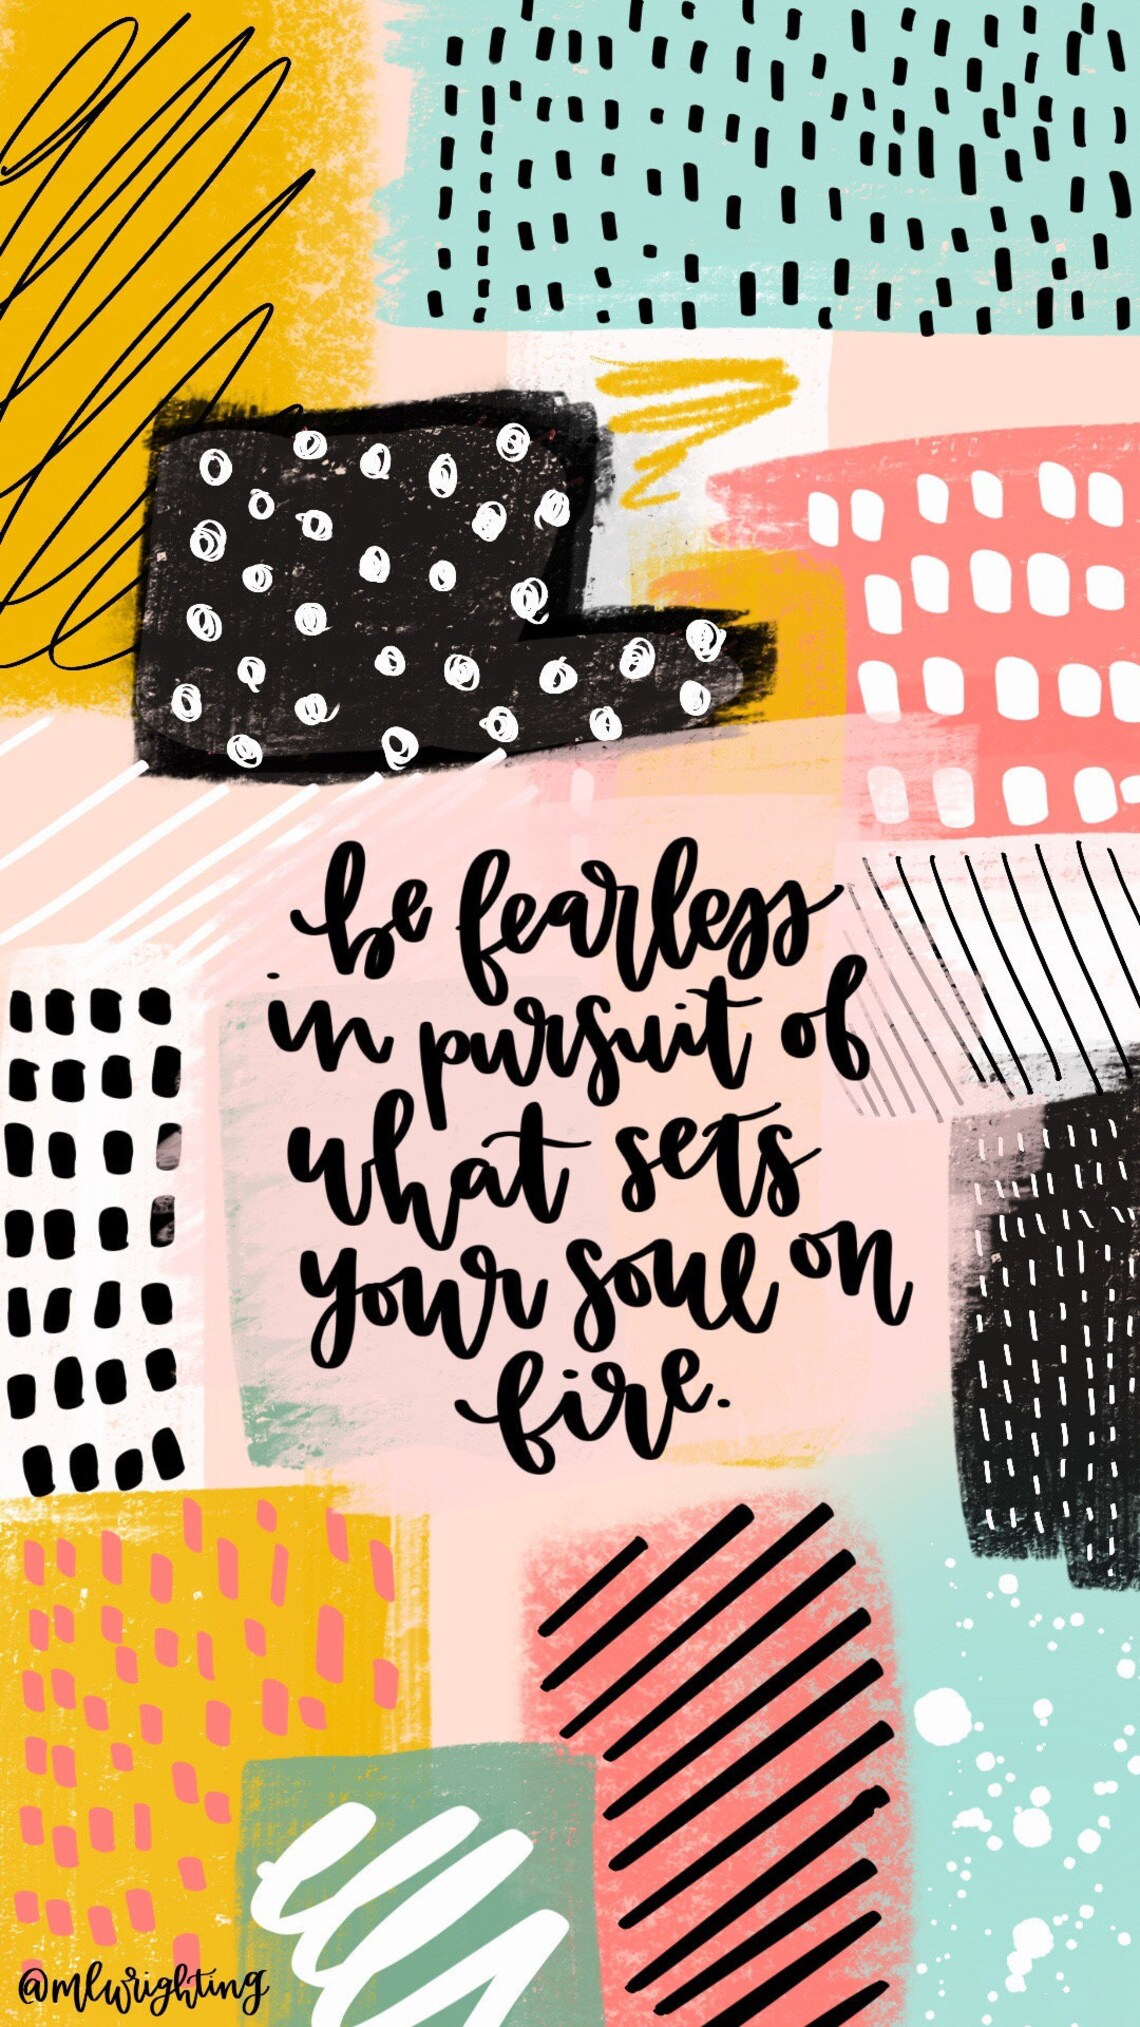 be fearless
in pursuit of
what sets
your soul on
fire.
@mlwrighting